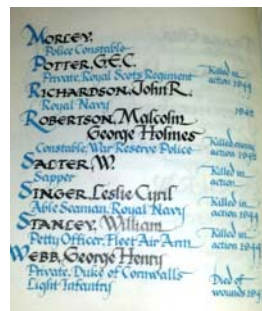 MORLEY,
Police Constable
POTTER, G.E.C.
Private, Royal Scots Regiment Killed in action 1944
RICHARDSON, John R.
Royal Navy 1942
ROBERTSON, Malcolm
George Holmes
Constable, War Reserve Police Killed enemy action
SALTER, W.
Sapper Killed in action
SINGER, Leslie Cyril
Able Seaman, Royal Navy Killed in action 1944
STANLEY, William
Petty Officer, Fleet Air Arm Killed in action 1944
WEBB, George Henry
Private, Duke of Cornwalls
Light Infantry Died of wounds